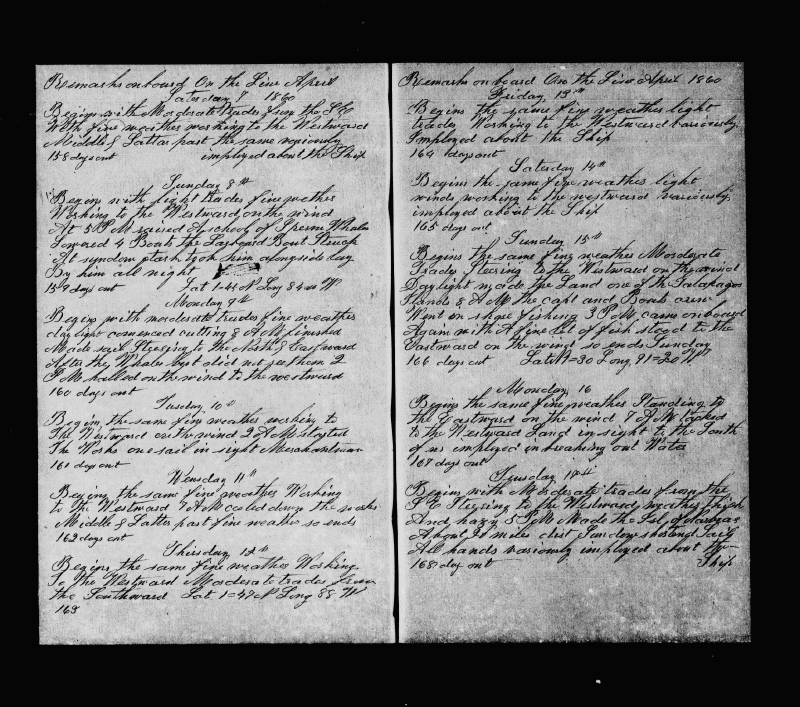 Remarks on board On the Line April
Saturday 7 1860
Begins with Moderate trades from the S E
With fine weather working to the Westward
Middle & Lattar part the same variously
158 days out employed about the Ship
Sunday 8th
Begins with light trades fine wether
Working to the Westward on the wind
At 5 P M raised A school of Sperm Whales
Lowered 4 Boats the Larboard Boat Struck
At sundown took him alongside lay
By him all night
159 days out Lat 1=48 N Long 84 W
Monday 9th
Begins with moderate trades fine weather
day light comenced cutting 8 A M finished
Made sail Steering to the North & Eastward
After the Whales but did not see them 2
P M hauled on the wind to the westward
160 days out
Tusday 10th
Begins the same fine weather working to
The Westward on the wind 2 A M Started
The Works one sail in sight Merchantman
161 days out
Wensday 11th
Begins the same fine weather Working
to the Westward 7 A M cooled down the works
Middle & Latter part fine weather so ends
162 days out
Thirsday 12th
Begins the same fine weather Working
To the Westward Moderate trades from
the Southward Lat 1=49 N Long 88 W
163
Remarks on board On the Line April 1860
Friday 13th
Begins the same fine weather light
trades Working to the Westward variously
Employed about the Ship
164 days out
Satarday 14th
Begins the same fine weather light
winds working to the westward variously
imployed about the Ship
165 days out
Sunday 15th
Begins the same fine weather Moderate
Trades Steering to the Westward on the wind
Day light made the Land one of the Galapagos
Islands 8 A M the capt and Boats crew
Went on shore fishing 3 P M came on board
Again with A fine lot of fish stood to the
Eastward on the wind so ends Sunday
166 days out Lat =30 Long 91=20 W
Monday 16
Begins the same fine weather Standing to
the Eastward on the wind 7 A M tacked
to the Westward Land in sight to the South
of us employed in breaking out Water
167 days out
Tuesday 17th
Begins with Moderate trades from the
S E Steering to the Westward weather thick
And hazy 5 P M Made the Isl of
About 20 miles dist Sundown shortend Sail
All hands variously imployed about the
168 days out Ship